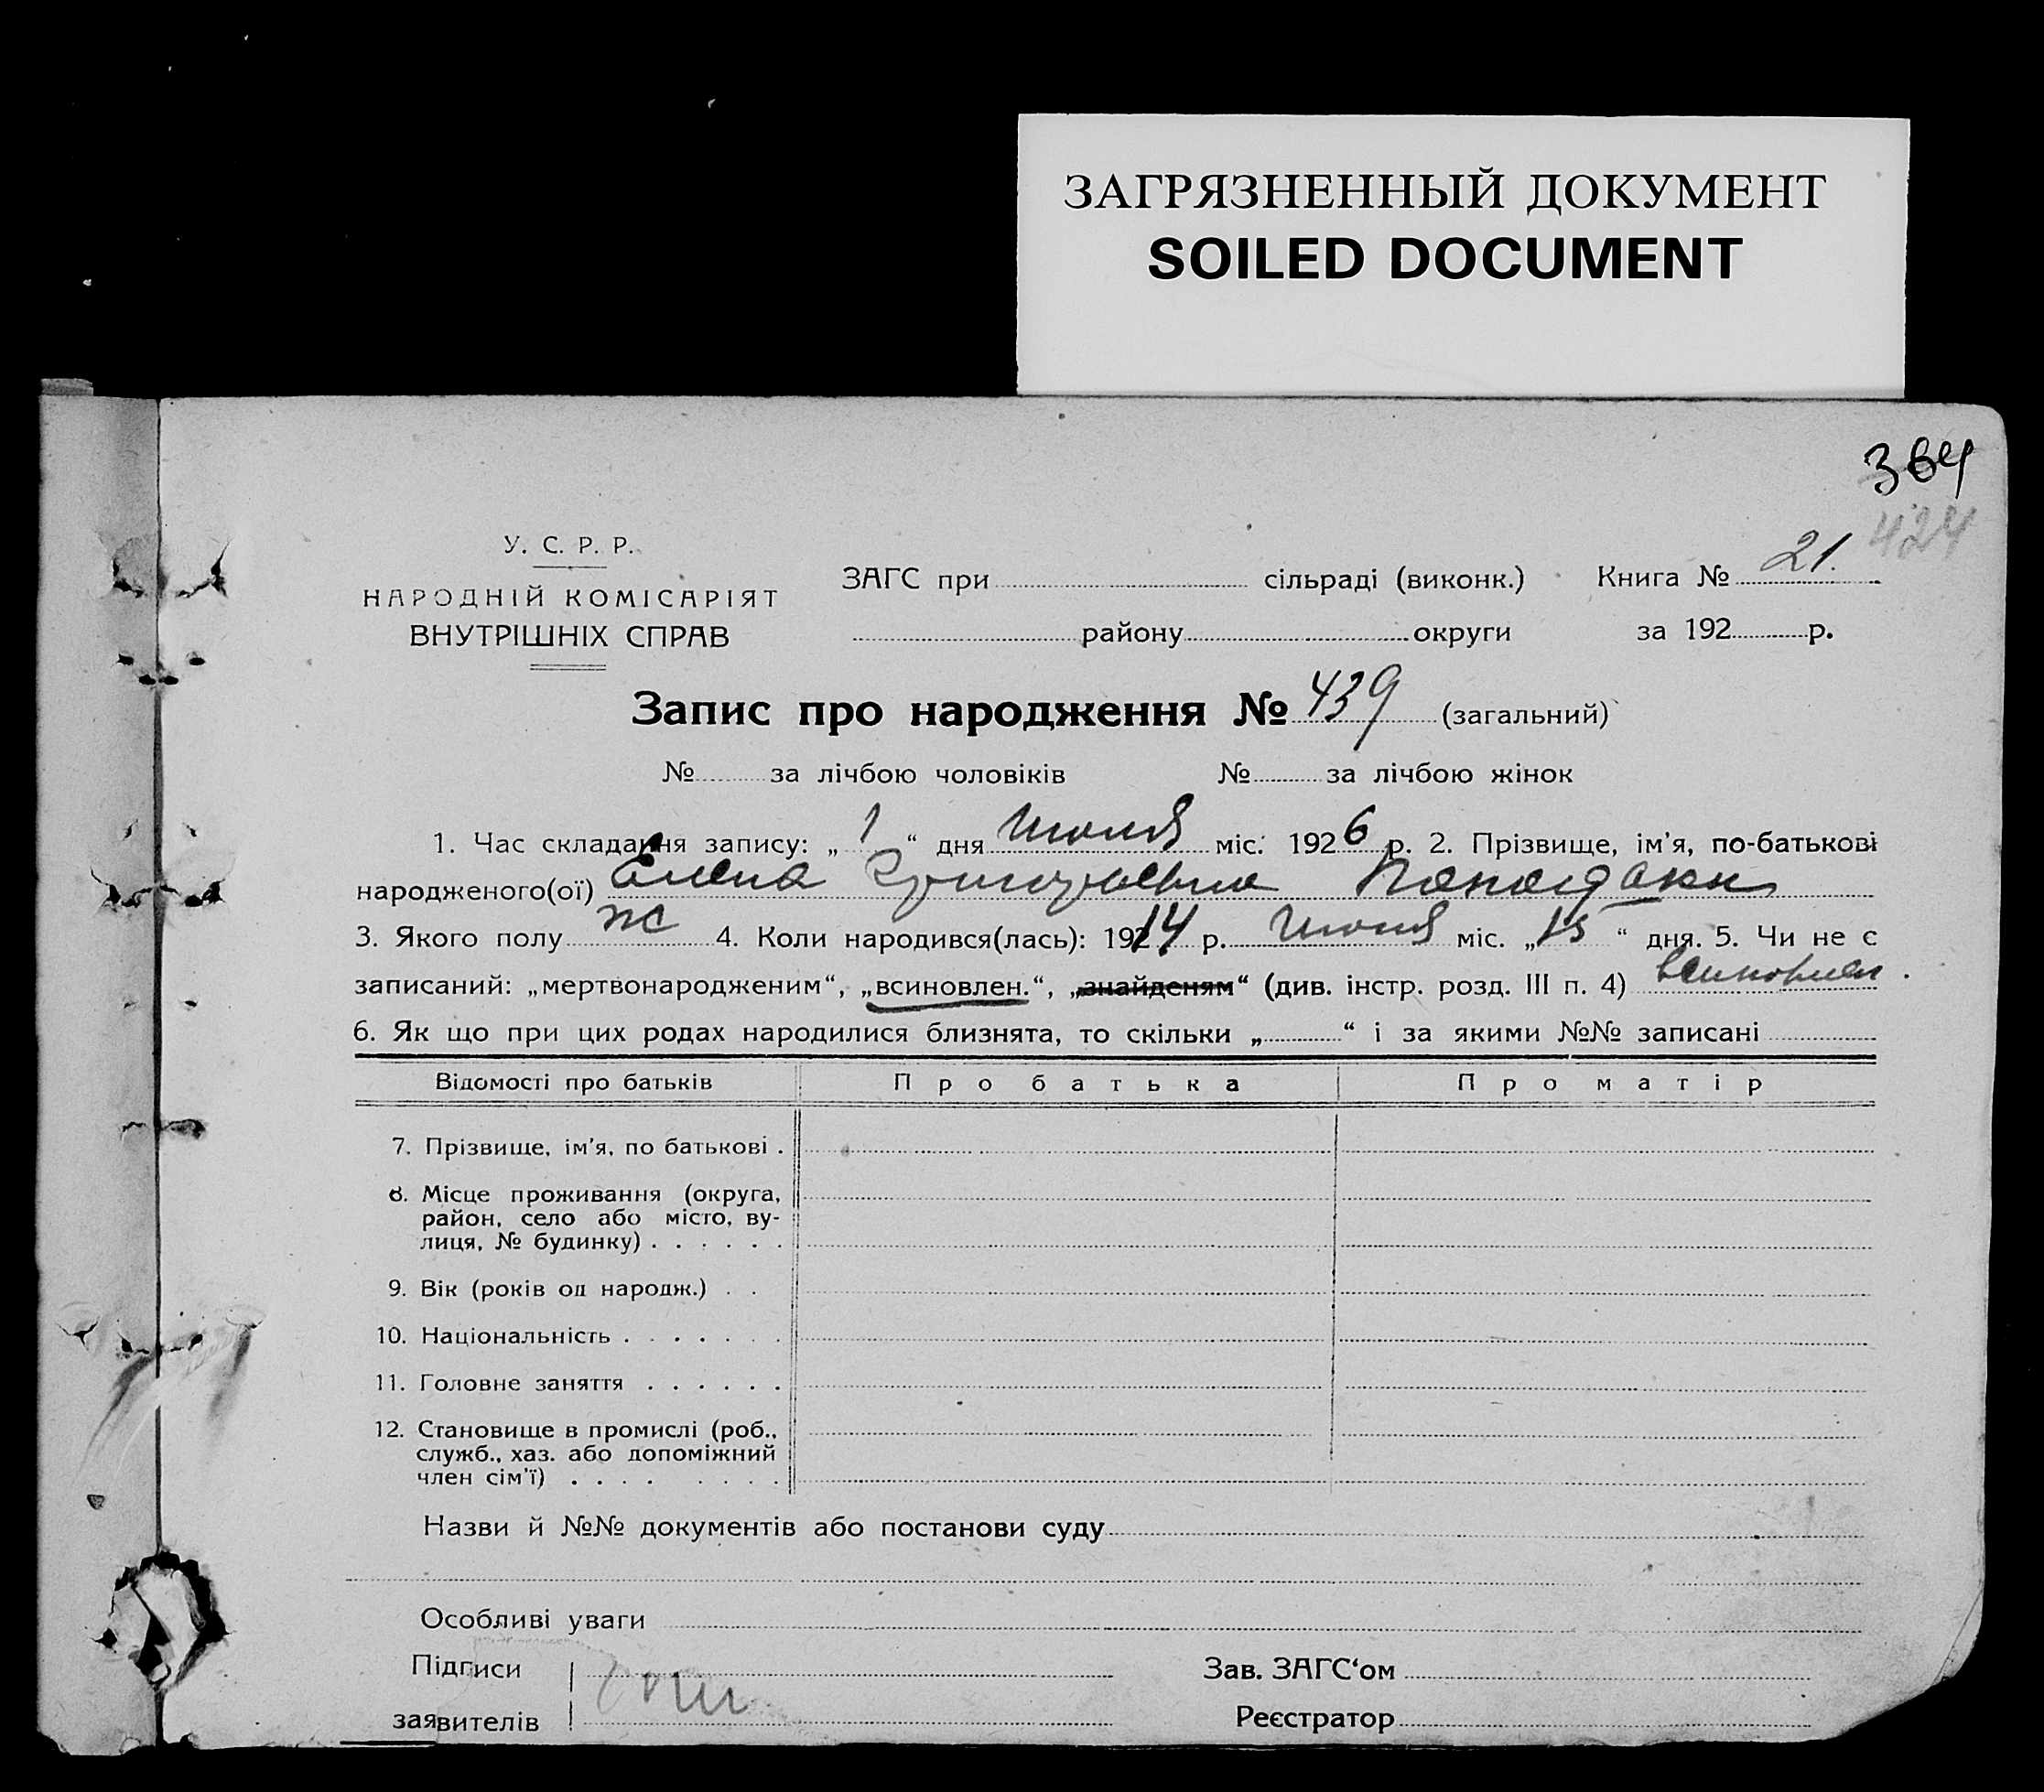 ЗАГРЯЗНЕННЫЙ ДОКУМЕНТ
SOILED DOCUMENT
364
424
У. С. Р. Р.
НАРОДНІЙ КОМІСАРІЯТ
ВНУТРІШНІХ СПРАВ
ЗАГС при сільраді (виконк.) Книга № 21.
району округи за 192 р.
Запис про народження № 439 (загальний)
№ за лічбою чоловіків № за лічбою жінок
1. Час складання запису: „ 1 “ дня Июля міс. 1926 р. 2. Прізвище, ім'я, по-батькові
народженого(ої) Елена Григорьевна
3. Якого полу ж 4. Коли народився(лась): 1914 р. міс. „15“ дня. 5. Чи не є
записаний: „мертвонародженим“, „всиновлен.“, „знайденям“ (див. інстр. розд. III п. 4) всиновлен.
6. Як що при цих родах народилися близнята, то скільки „ “ і за якими №№ записані
Відомості про батьків Про батька Про матір
7. Прізвище, ім'я, по батькові .
8. Місце проживання (округа,
район, село або місто, ву-
лиця, № будинку) . . . . . .
9. Вік (років од народж.) . .
10. Національність . . . . . . .
11. Головне заняття . . . . . .
12. Становище в промислі (роб.,
служб., хаз. або допоміжний
член сім'ї) . . . . . . . .
Назви й №№ документів або постанови суду
Особливі уваги
Підписи Зав. ЗАГС‘ом
заявителів Реєстратор